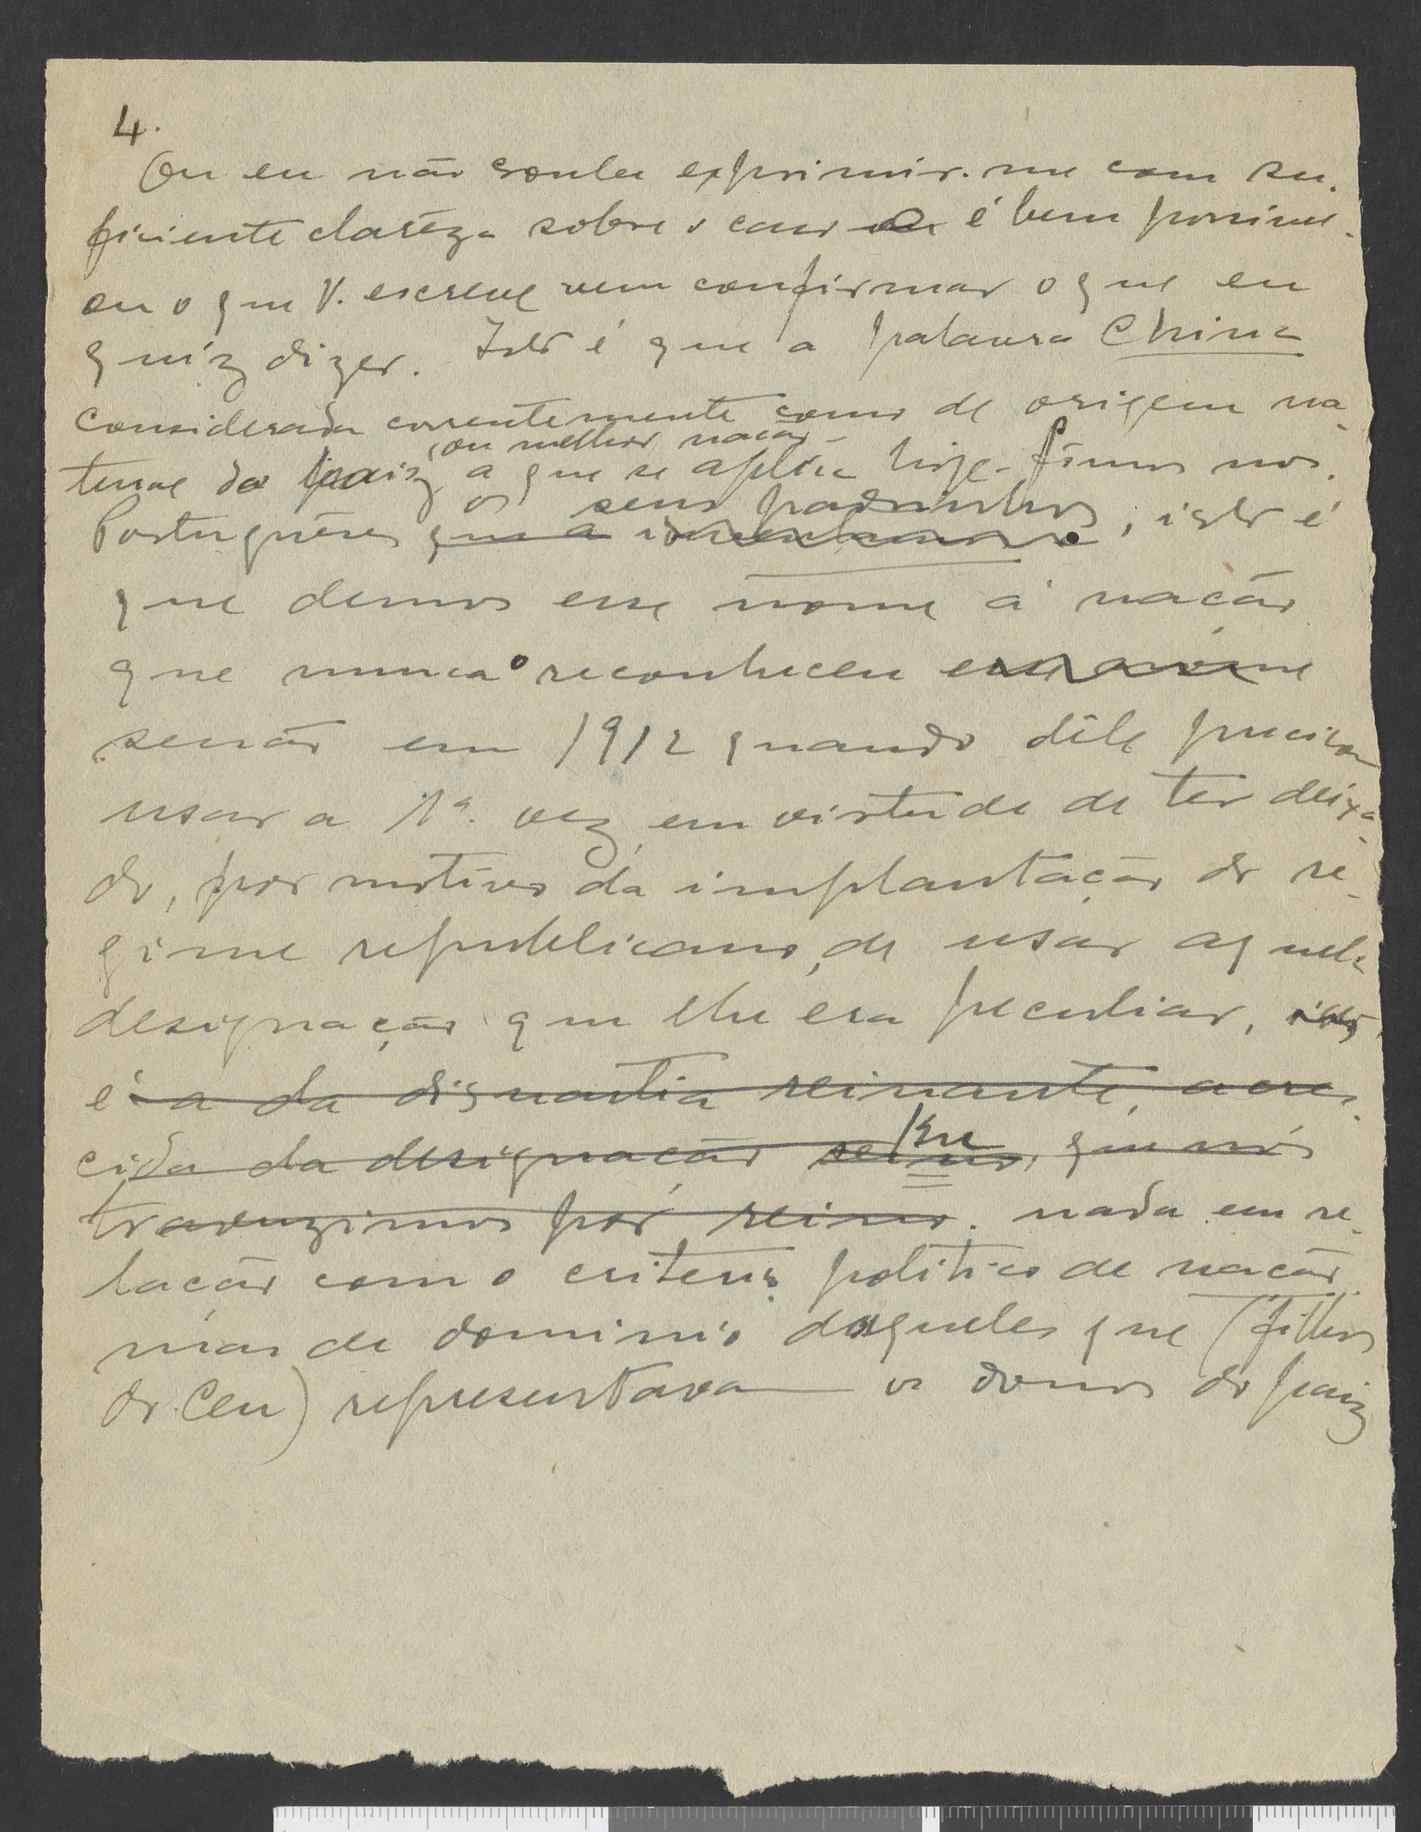 4.
Ou eu não soube exprimir-me com su-
ficiente clarêza sobre o caso é bem possivel-
ou o que V. escreve vem confirmar o que eu
quíz dizer. Isto é que a palavra China
considerada correntemente como de origem na-
(ou melhor nação-
tural do paiz a que se aplica hoje- fômos nos-
os seus padrinhos
Portuguêses que a inventamos; isto é
que demos esse nome á nação
que nunca o reconheceu esse nome
senão em 1912 quando dêle precisou
usar a 1ª. vez em virtude de ter deixa-
do, por motivos da implantação do re-
gime republicano, de usar aquela
designação que lhe era peculiar, isto
é a da disnastia reinante, acres-
Kue
cida da designação reino, que nós
traduzimos por reino. nada em re-
lação com o criterio politico de nação
mas de dominio daqueles que (filhos
do Ceu) representavam os donos do paiz